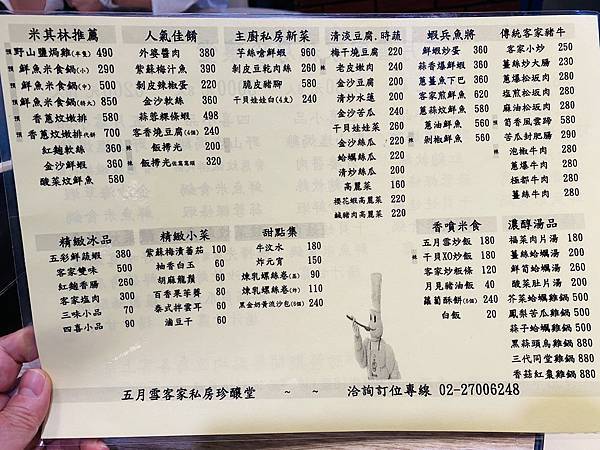 米其林推薦
預 野山鹽焗雞(半隻) 490
預 鮮魚米食鍋(小) 290
預 鮮魚米食鍋(中) 500
預 鮮魚米食鍋(特大) 850
預 香蔥炆嫩排 580
預 香蔥炆嫩排 700
紅麴軟絲 360
金沙鮮蝦 360
酸菜炆鮮魚 580
人氣佳餚
外婆醬肉 380
紫蘇梅汁魚 390
剝皮辣椒蚵 220
金沙軟絲 360
蒜蓉粿條蝦 498
客香燒豆腐(4個) 240
飯撈光 200
飯撈光 320
主廚私房新菜
芋絲嗆鮮蝦 960
剝皮豆乾肉絲 260
脆皮豬腳 580
干貝娃娃白(4支) 240
清淡豆腐.時蔬
梅干燒豆腐 220
老皮嫩肉 240
金沙豆腐 220
清炒水蓮 200
金沙苦瓜 240
干貝娃娃菜 260
金沙絲瓜 220
蛤蠣絲瓜 220
清炒絲瓜 200
高麗菜 160
櫻花蝦高麗菜 220
鹹豬肉高麗菜 220
蝦兵魚將
鮮蚵炒蛋 360
蒜香爆鮮蝦 360
蔥薑魚下巴 360
客家煎鮮魚 620
蔥蒜炆鮮魚 580
蔥油鮮魚 580
剁椒鮮魚 580
傳統客家豬牛
客家小炒 250
薑絲炒大腸 230
蔥爆松坂肉 280
鹽煎松坂肉 280
麻油松坂肉 280
筍香風雲蹄 580
苦瓜封肥腸 290
泡椒牛肉 280
蔥爆牛肉 280
極都牛肉 280
薑絲牛肉 280
精緻冰品
五彩鮮蔬蝦 380
客家雙味 500
紅麴香腸 260
客家鹽肉 300
三味小品 70
四喜小品 90
精緻小菜
紫蘇梅漬番茄 100
柚香白玉 60
胡麻龍鬚 60
百香果荸薺 80
泰式拌雲耳 60
滷豆干 60
甜點集
牛汶水 180
炸元宵 150
煉乳螺絲卷(蒸) 90
煉乳螺絲卷(炸) 110
黑金奶黃流沙包(6個) 240
香噴米食
五月雪炒飯 180
干貝XO炒飯 180
客家炒粄條 120
月見豬油飯 40
蘿蔔酥餅(6個) 240
白飯 20
濃醇湯品
福菜肉片湯 180
薑絲蛤蠣湯 200
鮮筍蛤蠣湯 260
酸菜肚片湯 200
芥菜蛤蠣雞鍋 500
鳳梨苦瓜雞鍋 500
蒜子蛤蠣雞鍋 500
黑蒜頭烏雞鍋 880
三代同堂雞鍋 880
香菇紅棗雞鍋 880
五月雪客家私房珍釀堂 ~ ~ 洽詢訂位專線 02-27006248